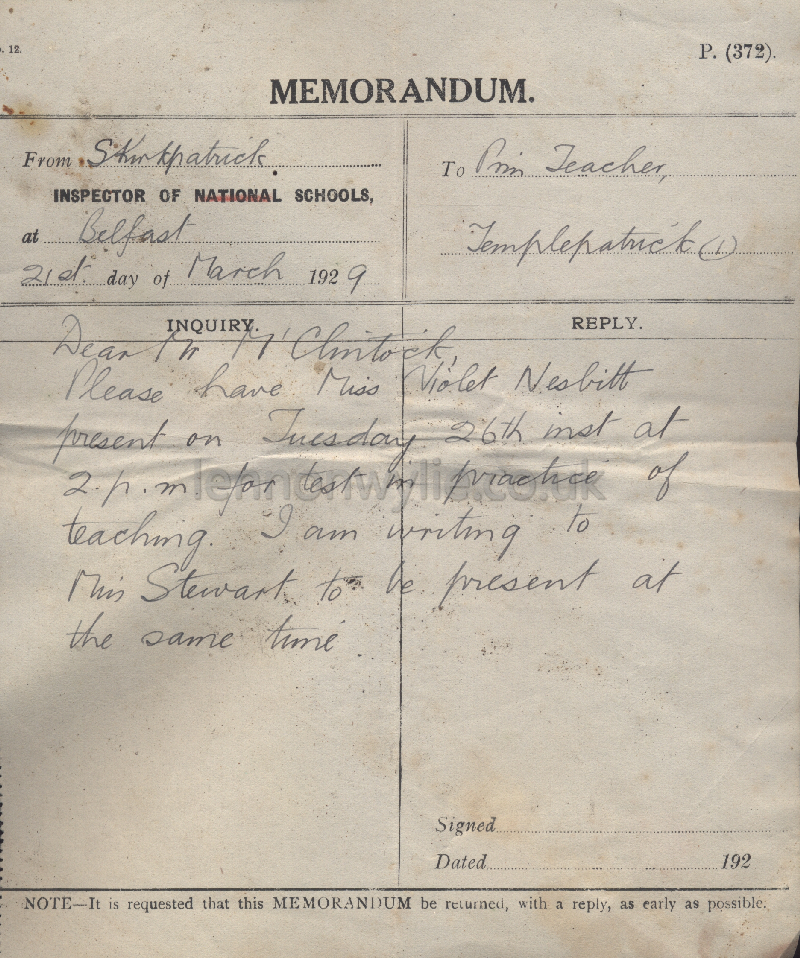 . 12.
P. (372).
MEMORANDUM.
From SKirkpatrick
INSPECTOR OF NATIONAL SCHOOLS,
at Belfast
21st. day of March 1929
To Prin Teacher,
Templepatrick (1)
INQUIRY.
REPLY.
Dear Mr M'Clintock,
Please have Miss Violet Nesbitt
present on Tuesday 26th inst at
2.p.m for test in practice of
teaching. I am writing to
Miss Stewart to be present at
the same time.
lennonwylie.co.uk
Signed
Dated 192
NOTE—It is requested that this MEMORANDUM be returned, with a reply, as early as possible.